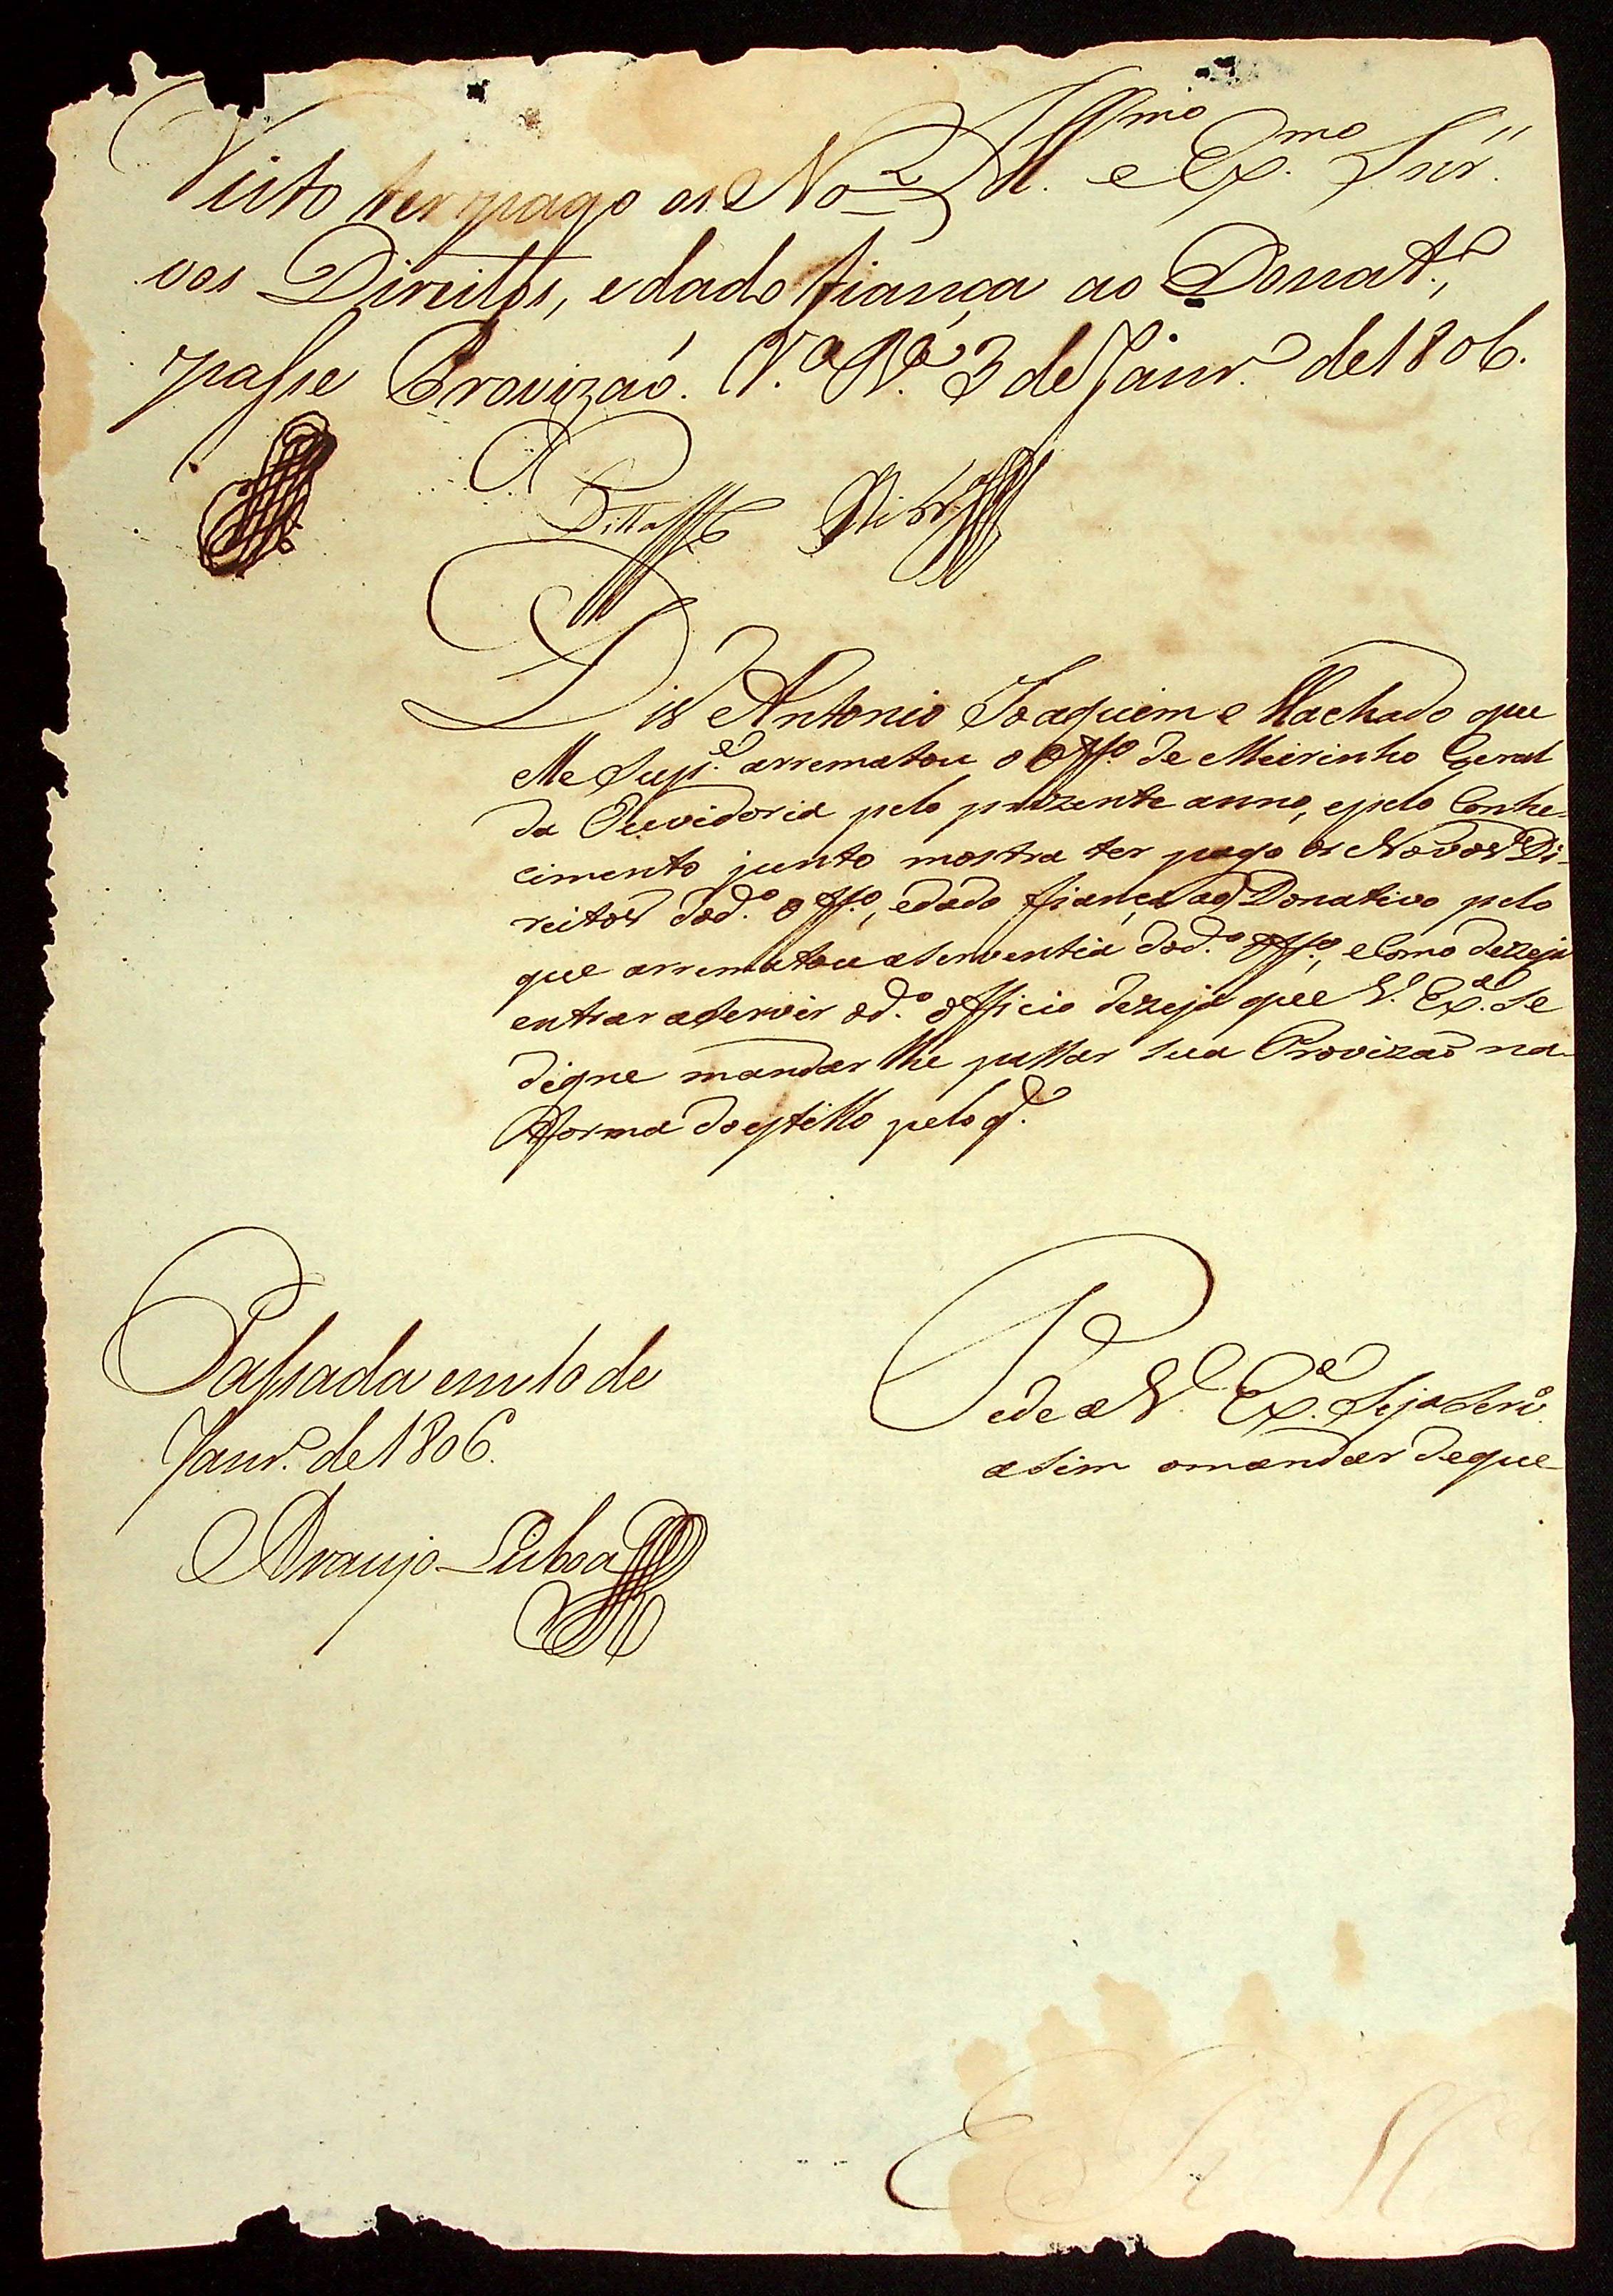 Ill.mo e Ex.mo Snr.
Visto ter pago os No-
vos Direitos, e dado fiança ao Donat.o,
passe Provizaõ. V.a R.a 3 de Janr.o de 1806.
Dis Antonio Joaquim Machado que
elle Sup.e arrematou o Off.o de Meirinho Geral
da Ouvidoria pelo prezente anno, e pelo Conhe-
cimento junto mostra ter pago os Novos Di-
reitos do d.o Off.o, e dado fiança ao Donativo pelo
que arrematou a serventia do d.o Off.o, e Como dezeja
entrar a servir o d.o Officio dezeja que V. Ex.a se
digne mandar lhe passar sua Provizaõ na
forma do estillo pelo q.
Pede a V. Ex.a Seja Serv.o
asim o mandar de que
Passada em 10 de
Janr.o de 1806.
Araujo Lisboa
E R M